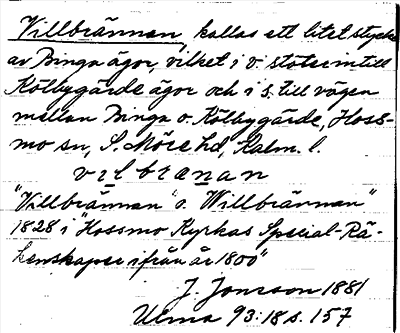 Villbrännan, kallas ett litet stycke
av Binga ägor, vilket i v. stöter intill
Kölbygärde ägor och i s. till vägen
mellan Binga o. Kölbygärde, Hoss-
mo sn, S. Möre hd, Kalm. l.
vilbranan
"Villbrännan" o. Willbrännan"
1828 i "Hossmo Kyrkas Special-Rä-
kenskaper ifrån år 1800"
J. Jonsson 1881
Ulma 93:18 s. 157